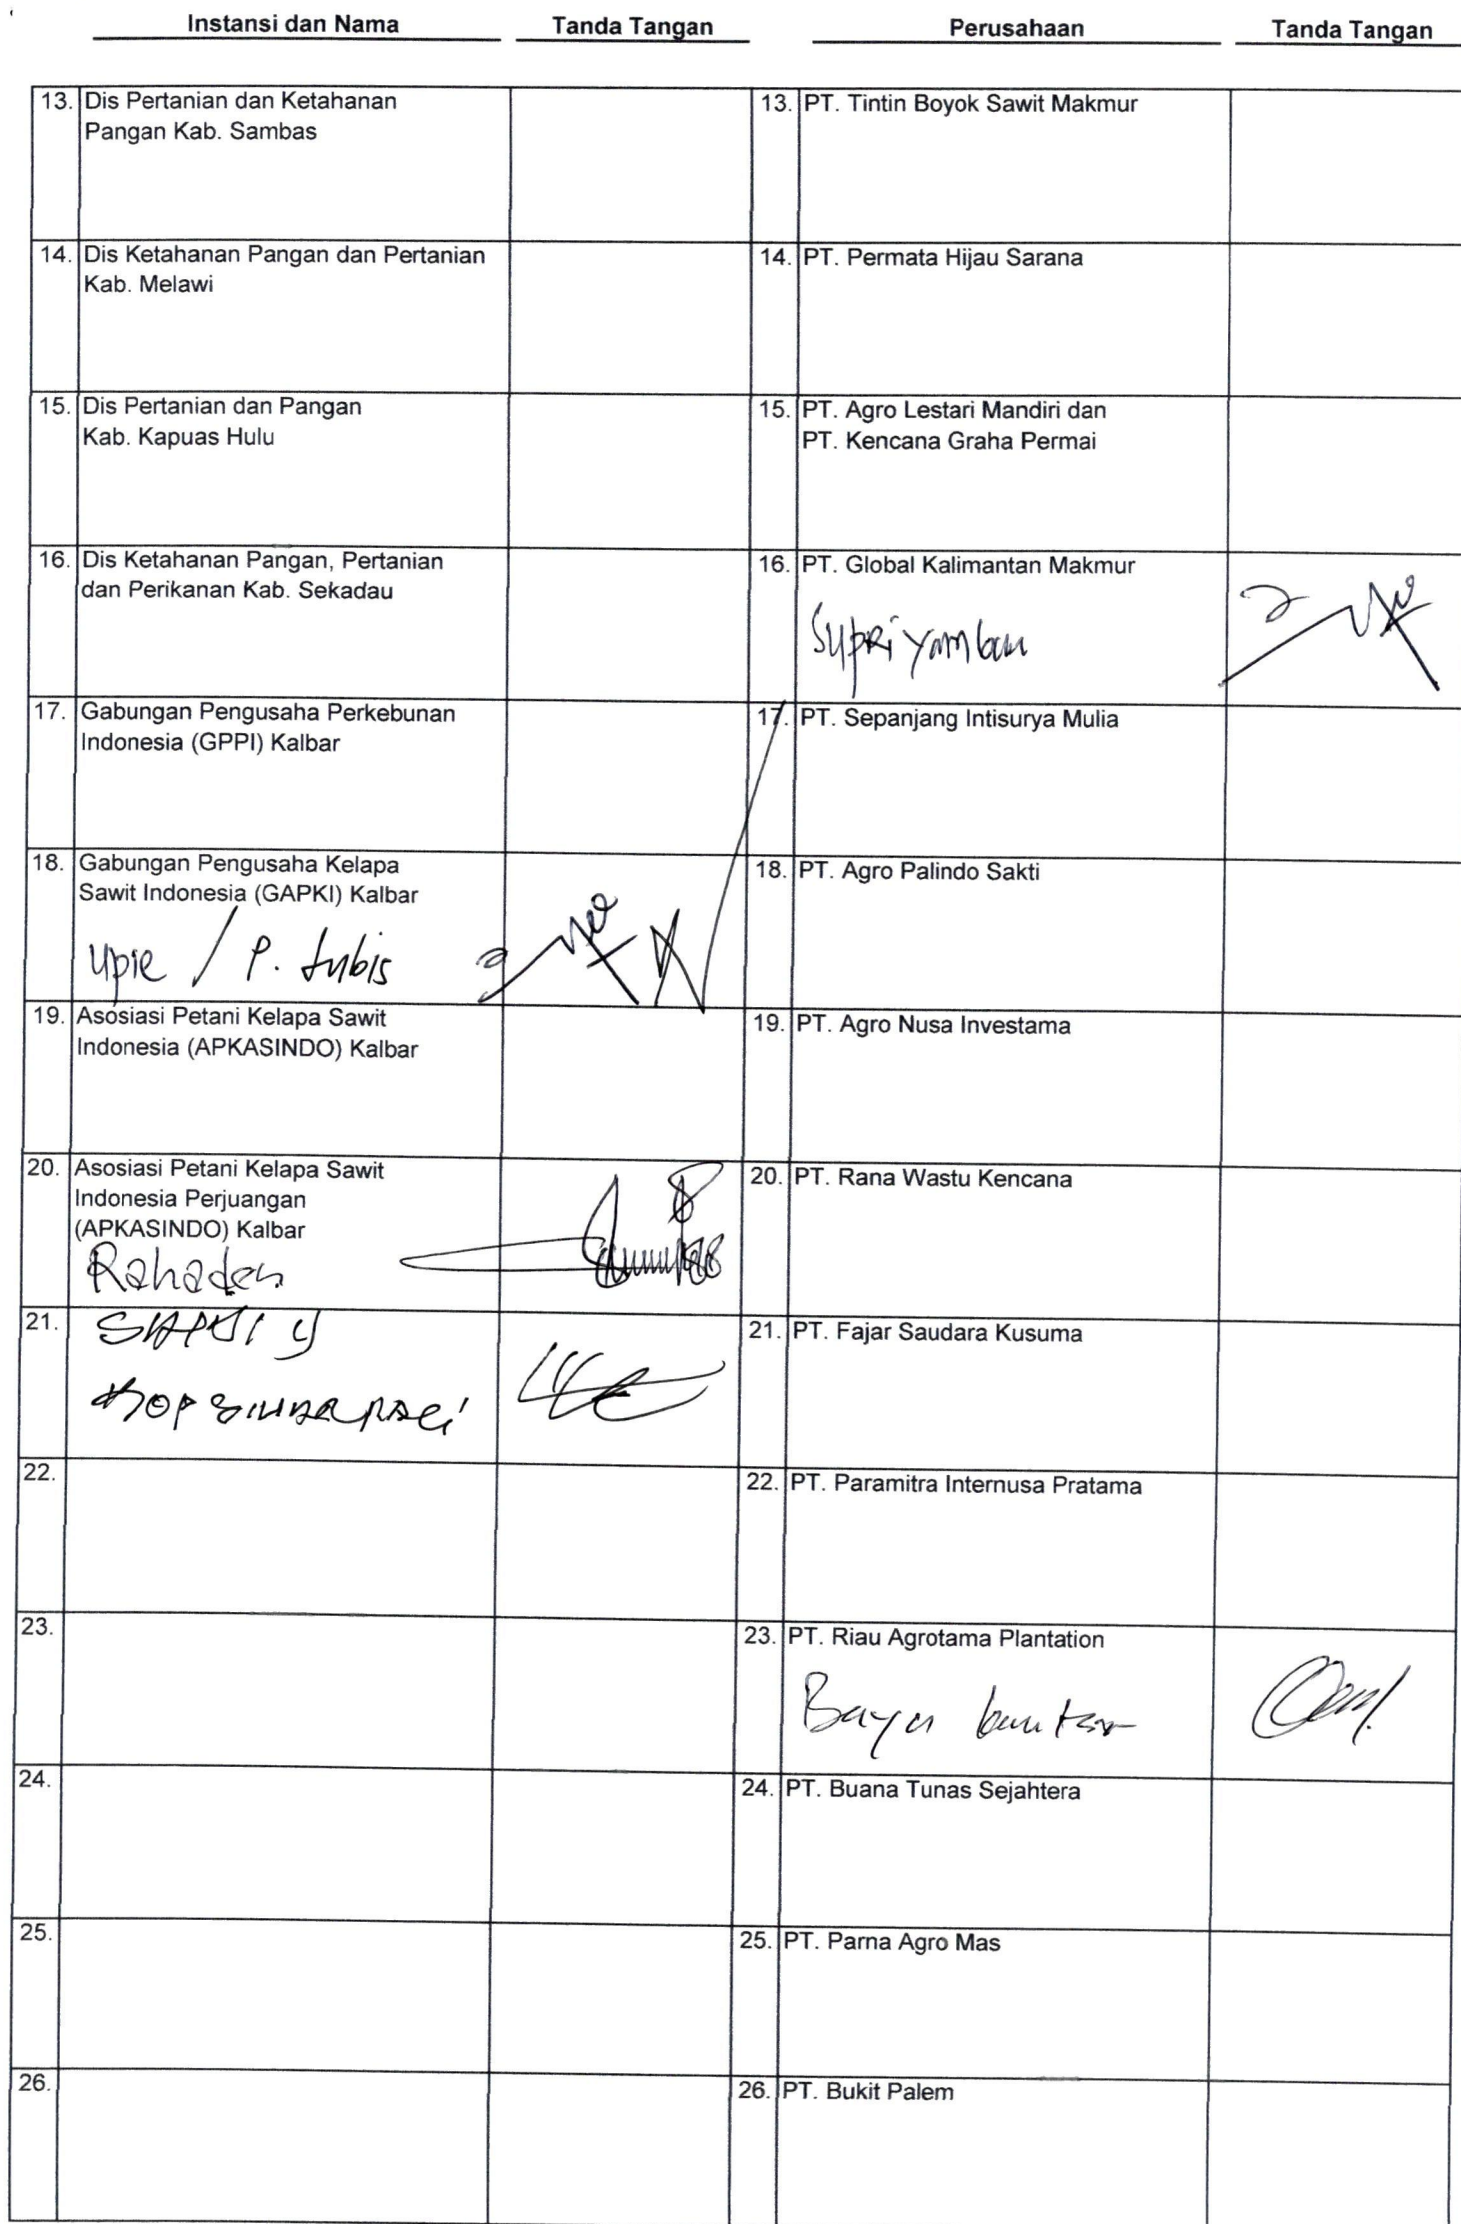 Instansi dan Nama Tanda Tangan Perusahaan Tanda Tangan
13. Dis Pertanian dan Ketahanan
Pangan Kab. Sambas
13. PT. Tintin Boyok Sawit Makmur
14. Dis Ketahanan Pangan dan Pertanian
Kab. Melawi
14. PT. Permata Hijau Sarana
15. Dis Pertanian dan Pangan
Kab. Kapuas Hulu
15. PT. Agro Lestari Mandiri dan
PT. Kencana Graha Permai
16. Dis Ketahanan Pangan, Pertanian
dan Perikanan Kab. Sekadau
16. PT. Global Kalimantan Makmur
17. Gabungan Pengusaha Perkebunan
Indonesia (GPPI) Kalbar
17. PT. Sepanjang Intisurya Mulia
18. Gabungan Pengusaha Kelapa
Sawit Indonesia (GAPKI) Kalbar
Upie / P. Lubis
18. PT. Agro Palindo Sakti
19. Asosiasi Petani Kelapa Sawit
Indonesia (APKASINDO) Kalbar
19. PT. Agro Nusa Investama
20. Asosiasi Petani Kelapa Sawit
Indonesia Perjuangan
(APKASINDO) Kalbar
Rahaden
20. PT. Rana Wastu Kencana
21.
21. PT. Fajar Saudara Kusuma
22.
22. PT. Paramitra Internusa Pratama
23.
23. PT. Riau Agrotama Plantation
Bayu
24.
24. PT. Buana Tunas Sejahtera
25.
25. PT. Parna Agro Mas
26.
26. PT. Bukit Palem